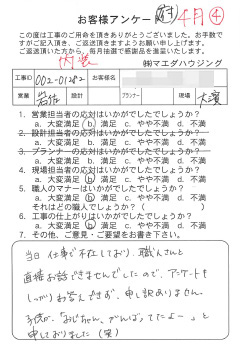 お客様アンケート
4月④
この度は工事のご用命を頂きありがとうございます。お手数で
すがご記入頂き、ご返送頂きますようお願い申し上げます。
ご返送頂いた方から、毎月抽選で感謝品を進呈いたします。
内装
㈱マエダハウジング
工事ID 002-01282 お客様名
営業 設計 プランナー 現場
1. 営業担当者の応対はいかがでしたでしょうか?
a. 大変満足 b. 満足 c. やや不満 d. 不満
2. 設計担当者の応対はいかがでしたでしょうか?
a. 大変満足 b. 満足 c. やや不満 d. 不満
3. プランナーの応対はいかがでしたでしょうか?
a. 大変満足 b. 満足 c. やや不満 d. 不満
4. 現場担当者の応対はいかがでしたでしょうか?
a. 大変満足 b. 満足 c. やや不満 d. 不満
5. 職人のマナーはいかがでしたでしょうか?
a. 大変満足 b. 満足 c. やや不満 d. 不満
それはどの職人でしょうか?( )
6. 工事の仕上がりはいかがでしたでしょうか?
a. 大変満足 b. 満足 c. やや不満 d. 不満
7. その他、ご意見・ご要望をお書き下さい。
当日仕事で不在しており、職人さんと
直接お話できませんでしたので、アンケートを
しっかりお答えできず、申し訳ありません。
子供が、「おじちゃん、がんばってたよー」と
申しておりました(笑)